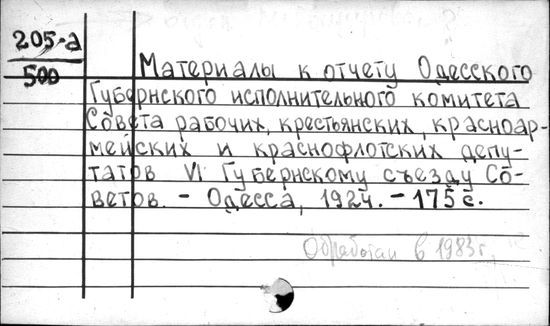 205-а
500
Материалы к отчету Одесского
Губернского исполнительного комитета
Совета рабочих, крестьянских, красноар-
мейских и краснофлотских депу-
татов VI Губернскому съезду Со-
ветов. - Одесса, 1924. - 175 с.
Обработан в 1983 г.